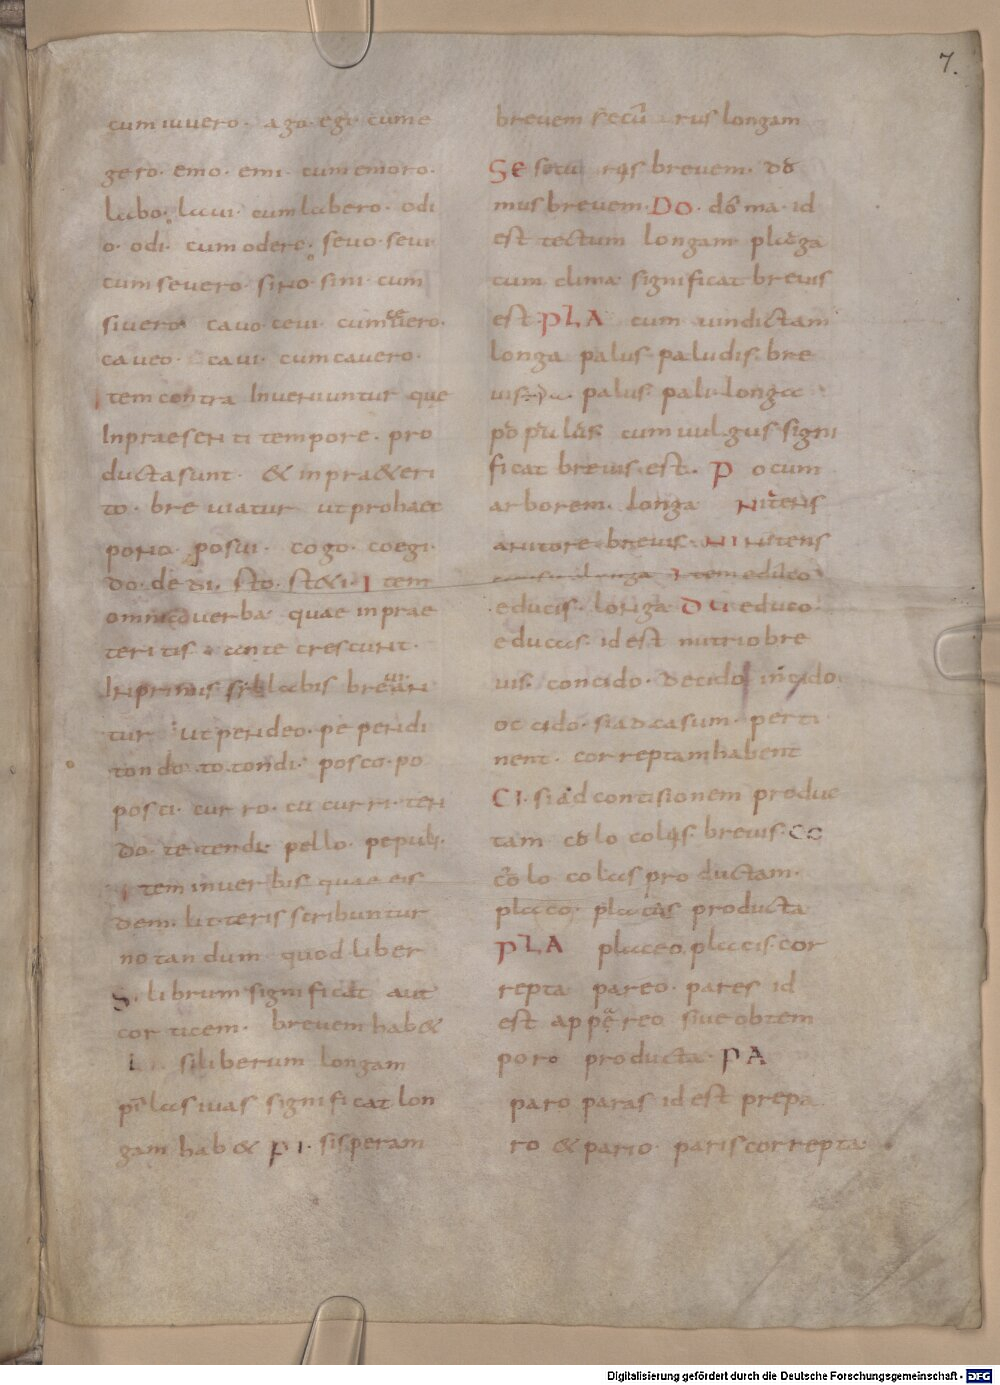 7.
cum iuvero. ago. egi. cum e
gero. emo. emi. cum emoro.
labo. lavi. cum labero. odi
o. odi. cum odere. sevo. sevi
cum severo. sino. sini. cum
sivero cavo cevi cum vero.
caveo. cavi. cum cavero.
tem contra Inveniuntur que
Inpraesenti tempore. pro
ducta sunt. & in pra&eri
to. breviatur ut prohaec
pono. posui. cogo. coegi.
do. dedi. sto. st&i. Item
omnia verba quae inprae
teritis ante crescunt.
Inprimis syllabis brevian
tur ut pendeo. pependi
tondo. totondi. posco. po
posci. curro. cucurri. ten
do. tetendi. pello. pepuli.
Item in verbis quae eis
dem. litteris scribuntur
notandum quod liber
Si librum significat aut
corticem. brevem hab&
Li. si liberum longam
pilas ivas significat lon
gam hab& PI. sis peram
brevem secu rus longam
SE secu rus brevem. do
mus brevem. DO. doma. id
est tectum longam plaga
cum clima significat brevis
est. PLA cum vindictam
longa palus paludis. bre
vis. palus. pali. longa
populus cum vulgus signi
ficat brevis. est. PO cum
arborem. longa Nitens
a nitore brevis. NI Nitens
longa Item educo
educis. longa DU educo.
educas. id est nutrio bre
vis. concido. decido. incido.
occido. si ad casum. perti
nent. correptam habent
CI. si ad concisionem produc
tam colo colis brevis. CO
colo colas productam.
placo. placas producta
PLA placeo. placis. cor
repta pareo. pares id
est appareo sive obtem
poro producta. PA
paro paras id est prepa
ro & pario. paris correpta
Digitalisierung gefördert durch die Deutsche Forschungsgemeinschaft - DFG